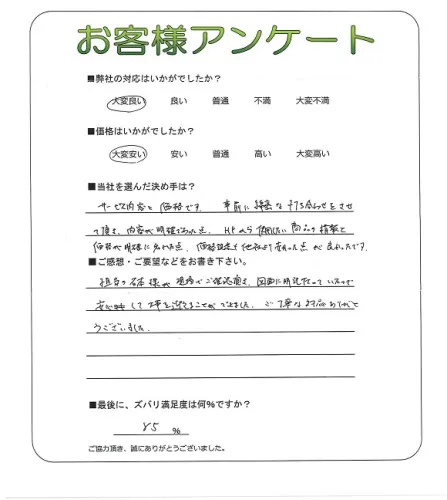 お客様アンケート
■弊社の対応はいかがでしたか？
大変良い 良い 普通 不満 大変不満
■価格はいかがでしたか？
大変安い 安い 普通 高い 大変高い
■当社を選んだ決め手は？
サービス内容と価格です。 事前に綿密な打ち合わせをさせ
て頂き、内容が明確であった点、HPから
価格が明確に 点、価格設定も他社より安かった点が良かったです。
■ご感想・ご要望などをお書き下さい。
担当の 様が現場でご確認頂き、図面に
安心して 事を進めることができました。ご丁寧な対応ありがと
うございました。
■最後に、ズバリ満足度は何％ですか？
85 %
ご協力頂き、誠にありがとうございました。